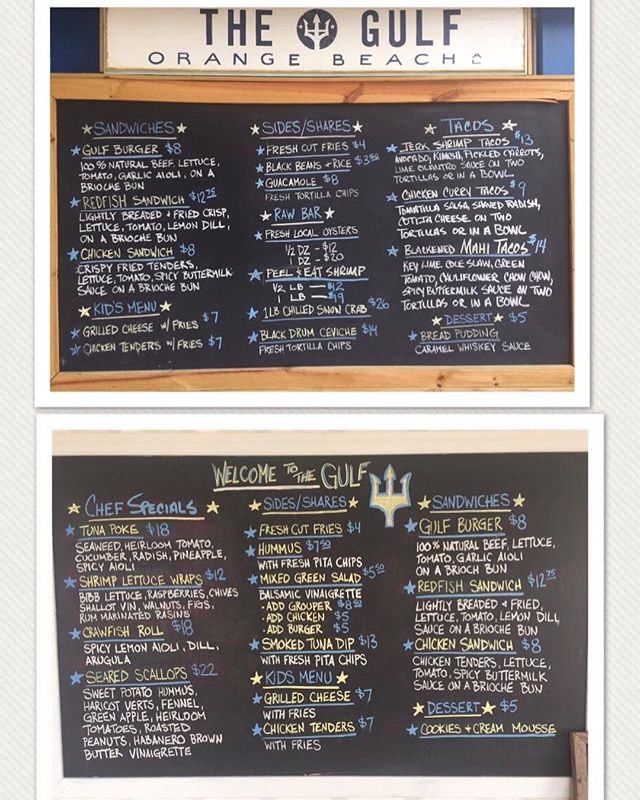 THE GULF
ORANGE BEACH
SANDWICHES
GULF BURGER $8
100% NATURAL BEEF, LETTUCE,
TOMATO, GARLIC AIOLI, ON A
BRIOCHE BUN
REDFISH SANDWICH $12.75
LIGHTLY BREADED + FRIED CRISP,
LETTUCE, TOMATO, LEMON DILL,
ON A BRIOCHE BUN
CHICKEN SANDWICH $8
CRISPY FRIED TENDERS,
LETTUCE, TOMATO, SPICY BUTTERMILK
SAUCE ON A BRIOCHE BUN
KID'S MENU
GRILLED CHEESE W/ FRIES $7
CHICKEN TENDERS W/ FRIES $7
SIDES/SHARES
FRESH CUT FRIES $4
BLACK BEANS + RICE $3.50
GUACAMOLE $8
FRESH TORTILLA CHIPS
RAW BAR
FRESH LOCAL OYSTERS
1/2 DZ - $12
1 DZ - $20
PEEL & EAT SHRIMP
1/2 LB - $12
1 LB - $19
1 LB CHILLED SNOW CRAB $26
BLACK DRUM CEVICHE $14
FRESH TORTILLA CHIPS
TACOS
JERK SHRIMP TACOS $13
AVOCADO, KIMCHI, PICKLED CARROTS,
LIME CILANTRO SAUCE ON TWO
TORTILLAS OR IN A BOWL
CHICKEN CURRY TACOS $9
TOMATILLA SALSA, SHAVED RADISH,
COTIJA CHEESE ON TWO
TORTILLAS OR IN A BOWL
BLACKENED MAHI TACOS $14
KEY LIME COLE SLAW, GREEN
TOMATO, CAULIFLOWER CHOW CHOW,
SPICY BUTTERMILK SAUCE ON TWO
TORTILLAS OR IN A BOWL
DESSERT $5
BREAD PUDDING
CARAMEL WHISKEY SAUCE
WELCOME TO THE GULF
CHEF SPECIALS
TUNA POKE $18
SEAWEED, HEIRLOOM TOMATO,
CUCUMBER, RADISH, PINEAPPLE,
SPICY AIOLI
SHRIMP LETTUCE WRAPS $12
BIBB LETTUCE, RASPBERRIES, CHIVES
SHALLOT VIN, WALNUTS, FIGS,
RUM MARINATED RASINS
CRAWFISH ROLL $18
SPICY LEMON AIOLI, DILL,
ARUGULA
SEARED SCALLOPS $22
SWEET POTATO HUMMUS,
HARICOT VERTS, FENNEL,
GREEN APPLE, HEIRLOOM
TOMATOES, ROASTED
PEANUTS, HABANERO BROWN
BUTTER VINAIGRETTE
SIDES/SHARES
FRESH CUT FRIES $4
HUMMUS $7.50
WITH FRESH PITA CHIPS
MIXED GREEN SALAD $5.50
BALSAMIC VINAIGRETTE
- ADD GROUPER $8.50
- ADD CHICKEN $5
- ADD BURGER $5
SMOKED TUNA DIP $13
WITH FRESH PITA CHIPS
KIDS MENU
GRILLED CHEESE $7
WITH FRIES
CHICKEN TENDERS $7
WITH FRIES
SANDWICHES
GULF BURGER $8
100% NATURAL BEEF, LETTUCE,
TOMATO, GARLIC AIOLI
ON A BRIOCH BUN
REDFISH SANDWICH $12.75
LIGHTLY BREADED + FRIED,
LETTUCE, TOMATO, LEMON DILL
SAUCE ON A BRIOCHE BUN
CHICKEN SANDWICH $8
CHICKEN TENDERS, LETTUCE,
TOMATO, SPICY BUTTERMILK
SAUCE ON A BRIOCHE BUN
DESSERT $5
COOKIES + CREAM MOUSSE